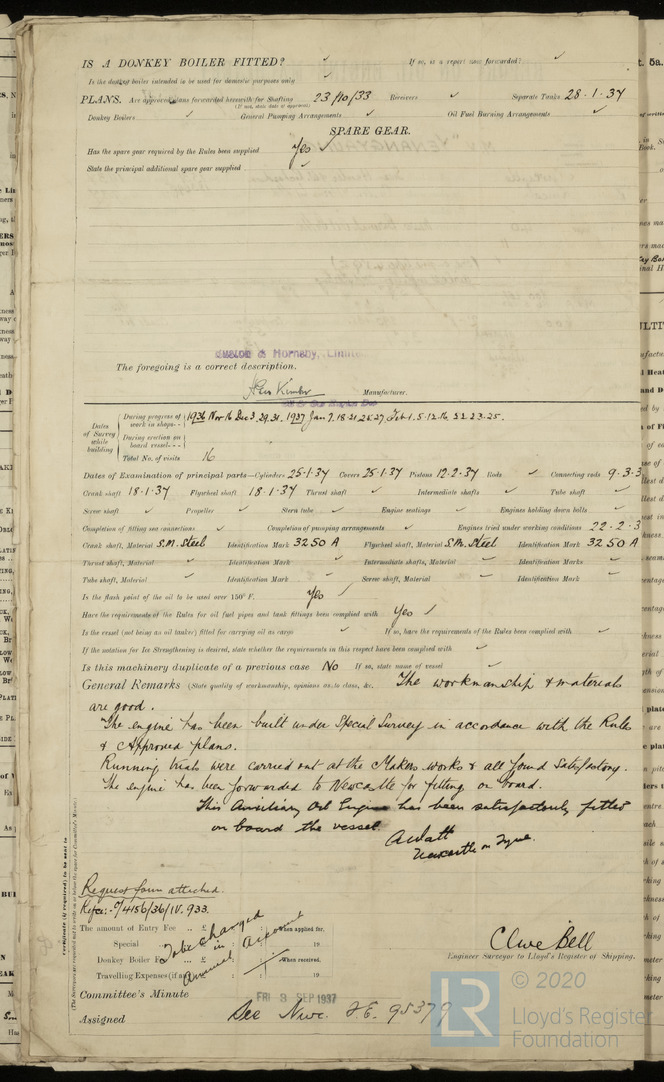 IS A DONKEY BOILER FITTED? ✓ If so, is a report now forwarded? ✓
Is the donkey boiler intended to be used for domestic purposes only ✓
PLANS. Are approved plans forwarded herewith for Shafting 23/10/33 Receivers ✓ Separate Tanks 28.1.37
(If not, state date of approval)
Donkey Boilers ✓ General Pumping Arrangements ✓ Oil Fuel Burning Arrangements ✓
SPARE GEAR.
Has the spare gear required by the Rules been supplied Yes ✓
State the principal additional spare gear supplied ✓
& Hornsby, Limite
The foregoing is a correct description.
Manufacturer.
Dates of Survey while building
During progress of work in shops-- 1936 Nov 16 Dec 3, 29, 31, 1937 Jan 7.18.21.25.27. Feb 1.5.12.16 22 23.25.
During erection on board vessel---
Total No. of visits 16
Dates of Examination of principal parts—Cylinders 25.1.37 Covers 25.1.37 Pistons 12.2.37 Rods ✓ Connecting rods 9.3.3
Crank shaft 18.1.37 Flywheel shaft 18.1.37 Thrust shaft ✓ Intermediate shafts ✓ Tube shaft ✓
Screw shaft ✓ Propeller ✓ Stern tube ✓ Engine seatings ✓ Engines holding down bolts ✓
Completion of fitting sea connections ✓ Completion of pumping arrangements ✓ Engines tried under working conditions 22.2.3
Crank shaft, Material S.M. Steel Identification Mark 3250 A Flywheel shaft, Material S.M. Steel Identification Mark 3250 A
Thrust shaft, Material ✓ Identification Mark ✓ Intermediate shafts, Material ✓ Identification Marks ✓
Tube shaft, Material ✓ Identification Mark ✓ Screw shaft, Material ✓ Identification Mark ✓
Is the flash point of the oil to be used over 150° F. Yes ✓
Have the requirements of the Rules for oil fuel pipes and tank fittings been complied with Yes ✓
Is the vessel (not being an oil tanker) fitted for carrying oil as cargo ✓ If so, have the requirements of the Rules been complied with ✓
If the notation for Ice Strengthening is desired, state whether the requirements in this respect have been complied with ✓
Is this machinery duplicate of a previous case No If so, state name of vessel ✓
General Remarks (State quality of workmanship, opinions as to class, &c. The workmanship & materials
are good.
The engine has been built under Special Survey in accordance with the Rules
& Approved plans.
Running trials were carried out at the Makers works & all found satisfactory.
The engine has been forwarded to Newcastle for fitting on board.
This Auxiliary Oil Engine has been satisfactorily fitted
on board the vessel.
A Watt
Newcastle on Tyne.
Certificate (if required) to be sent to
(The Surveyors are requested not to write on or below the space for Committee's Minute.)
Request form attached.
Refce:- 4156/36/IV.933.
The amount of Entry Fee .. £ : : When applied for,
Special .. £ : : 19
Donkey Boiler Fee .. £ : : When received,
Travelling Expenses (if any) £ : : 19
To be charged in Annual Account
Clive Bell
Engineer Surveyor to Lloyd's Register of Shipping.
Committee's Minute FRI 3 SEP 1937
Assigned See Nwc. F.E. 95379
© 2020
LR
Lloyd's Register
Foundation